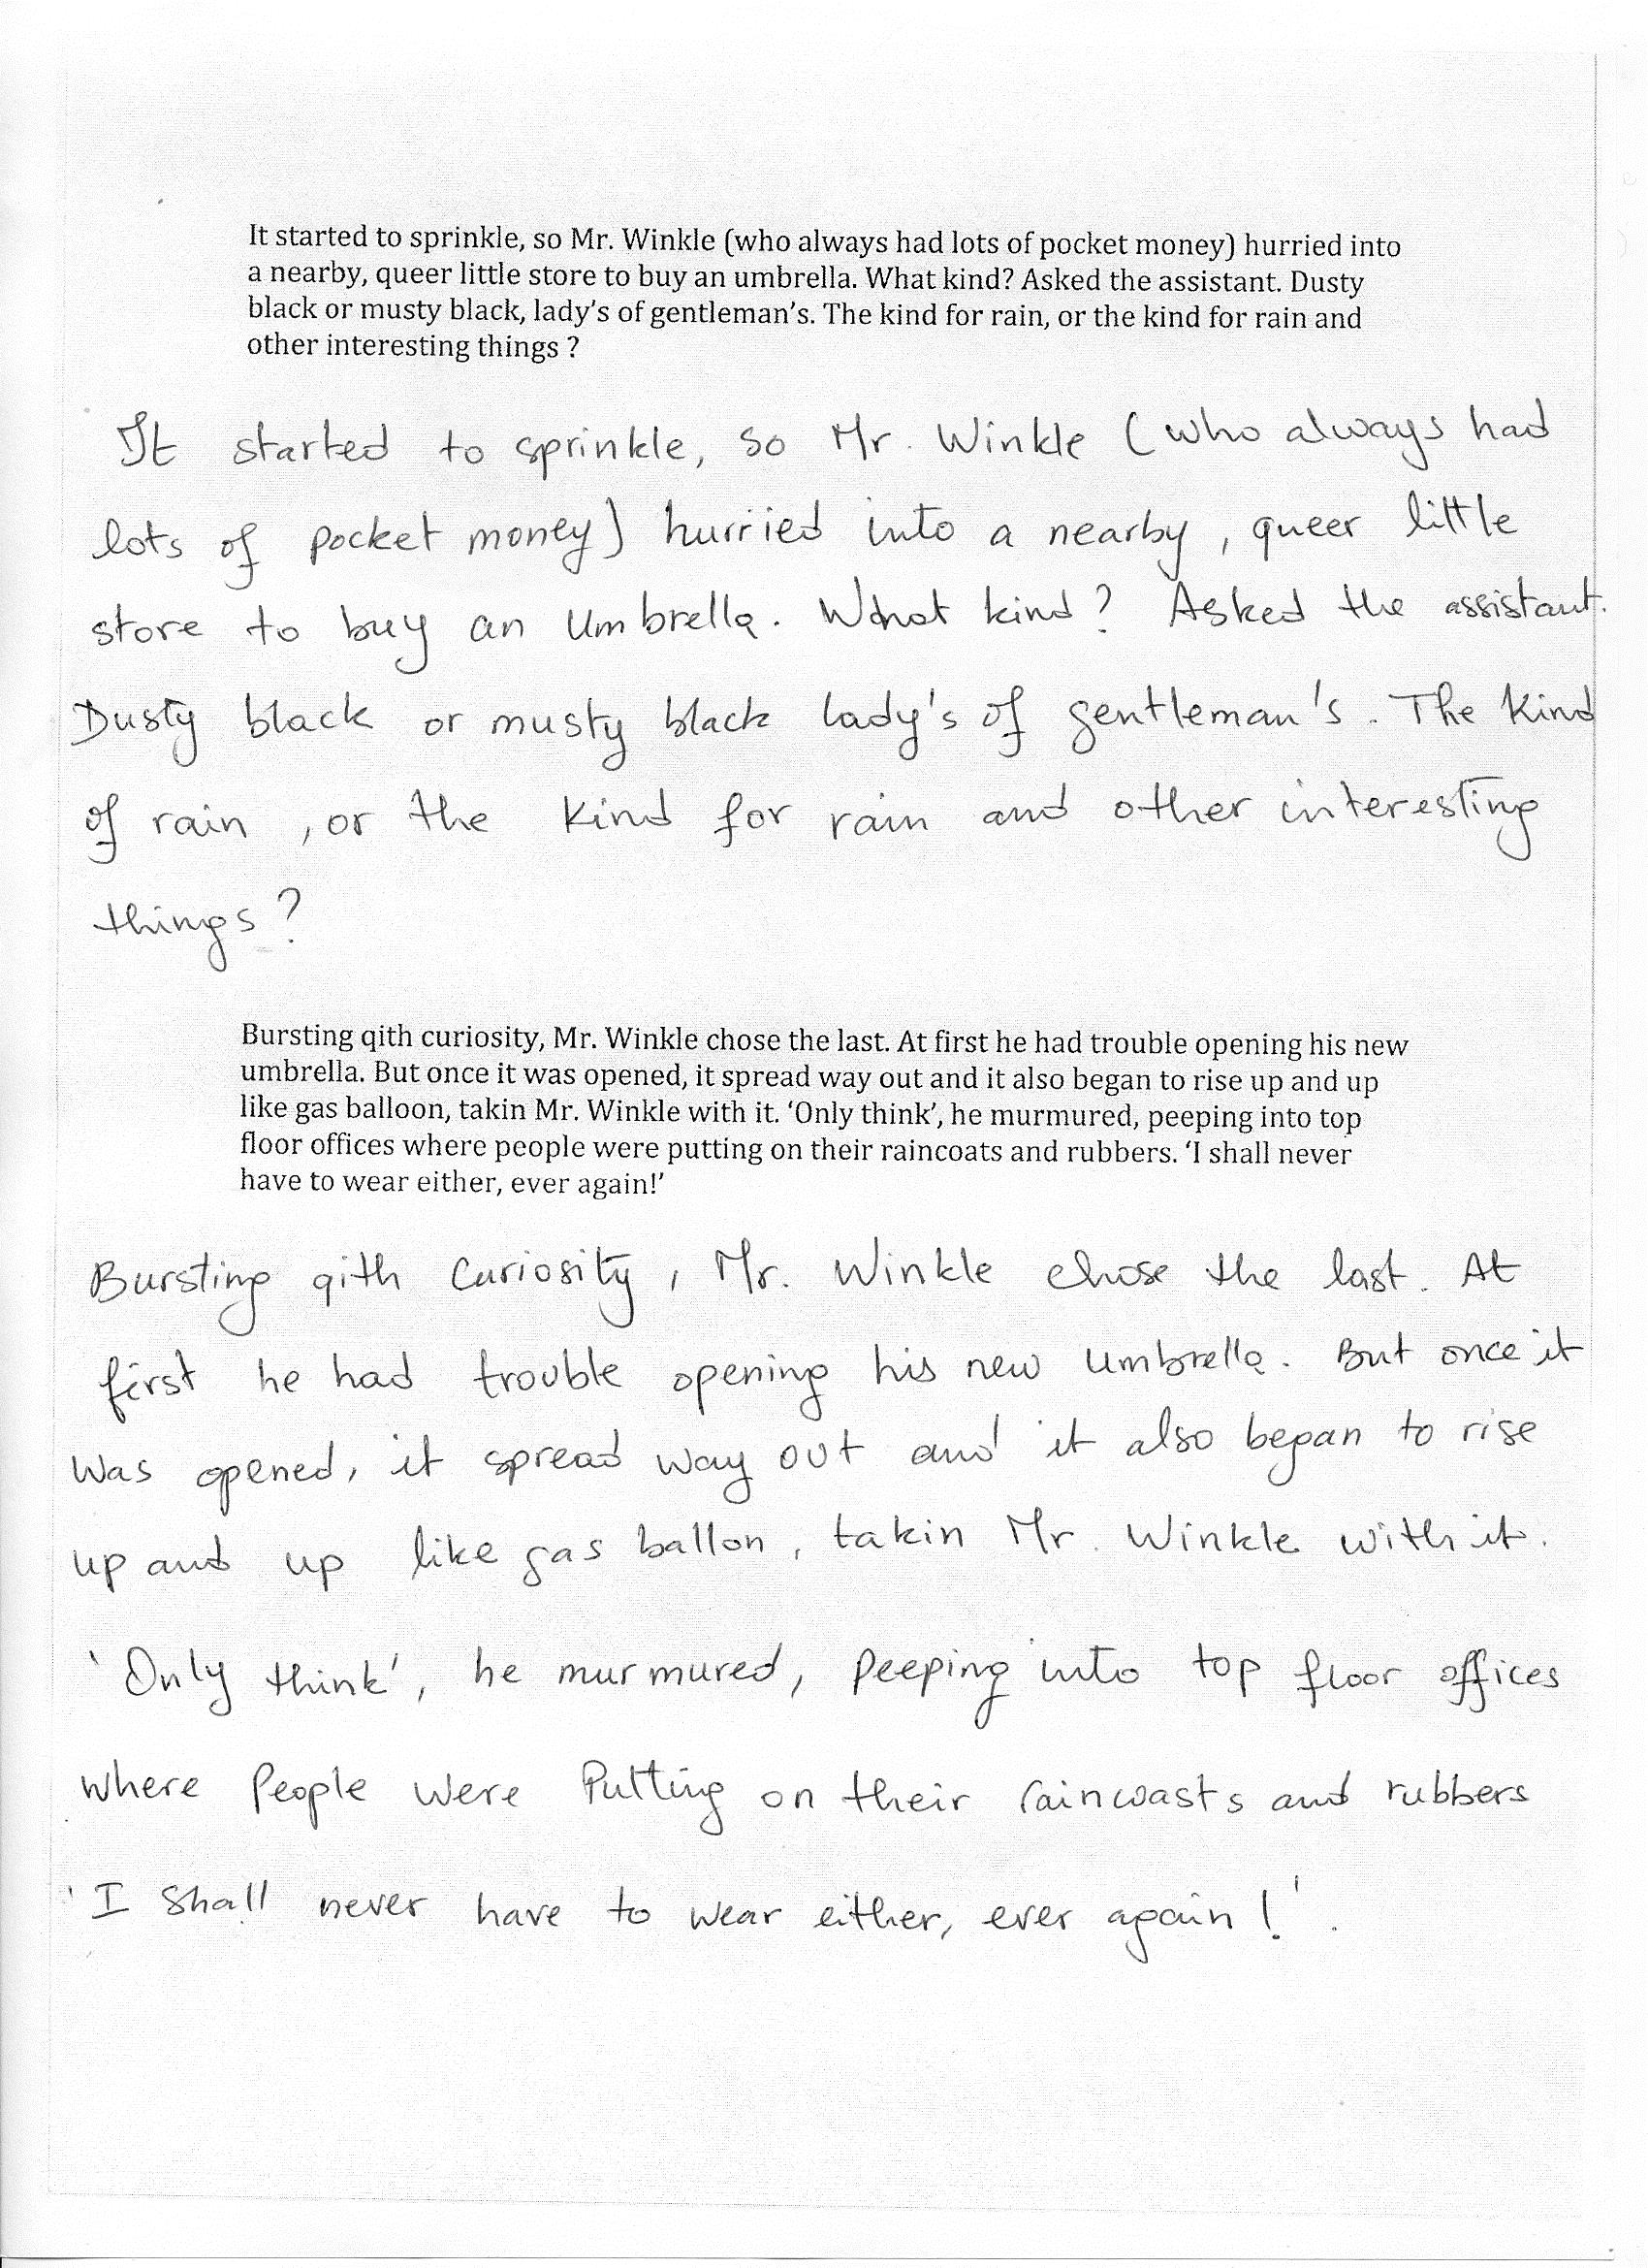 It started to sprinkle, so Mr. Winkle (who always had lots of pocket money) hurried into
a nearby, queer little store to buy an umbrella. What kind? Asked the assistant. Dusty
black or musty black, lady's of gentleman's. The kind for rain, or the kind for rain and
other interesting things ?
It started to sprinkle, so Mr. Winkle (who always had
lots of pocket money) hurried into a nearby, queer little
store to buy an umbrella. What kind? Asked the assistant.
Dusty black or musty black lady's of gentleman's. The kind
of rain, or the kind for rain and other interesting
things?
Bursting qith curiosity, Mr. Winkle chose the last. At first he had trouble opening his new
umbrella. But once it was opened, it spread way out and it also began to rise up and up
like gas balloon, takin Mr. Winkle with it. 'Only think', he murmured, peeping into top
floor offices where people were putting on their raincoats and rubbers. 'I shall never
have to wear either, ever again!'
Bursting qith curiosity, Mr. Winkle chose the last. At
first he had trouble opening his new umbrella. But once it
was opened, it spread way out and it also began to rise
up and up like gas ballon, takin Mr. Winkle with it.
'Only think', he murmured, peeping into top floor offices
where people were putting on their raincoasts and rubbers
'I shall never have to wear either, ever again!'.